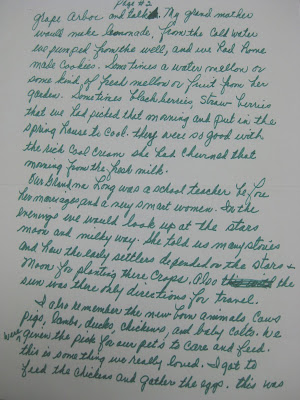 Page # 2
grape Arbor and talk. My grand mother
would make lemonade, from the Cold water
we pumped from the well, and we had Home
made Cookies. Sometimes a water mellon or
some kind of fresh mellon or fruit from her
garden. Sometimes blackberries, Straw berries
that we had picked that morning and put in the
spring house to cool. they were so good with
the rich Cool cream she had churned that
morning from the fresh milk.
Our Grandma Long was a school teacher before
her marriage and a very smart women. In the
evenings we would look up at the stars
moon and milky way. She told us many stories
and how the early settlers depended on the stars &
Moon for planting there Crops. Also the
sun was there only directions for travel.
I also remember the new born animals, Cows
pigs, lambs, ducks, chickens, and baby colts. We
were given the pick for our pet's to care and feed.
this is something we really loved. I got to
feed the chickens and gather the eggs. this was